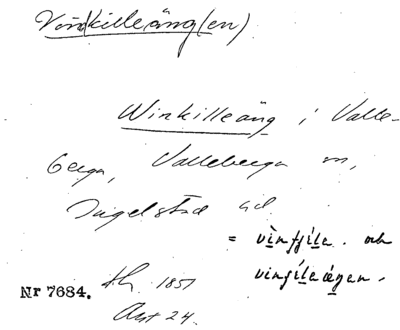 Vinkilleäng(en)
Winkilleäng i Valle-
berga, Valleberga sn,
Ingelstad hd
= vinfjile. och
vinfileægen.
Nr 7684.
1851
Akt 24.